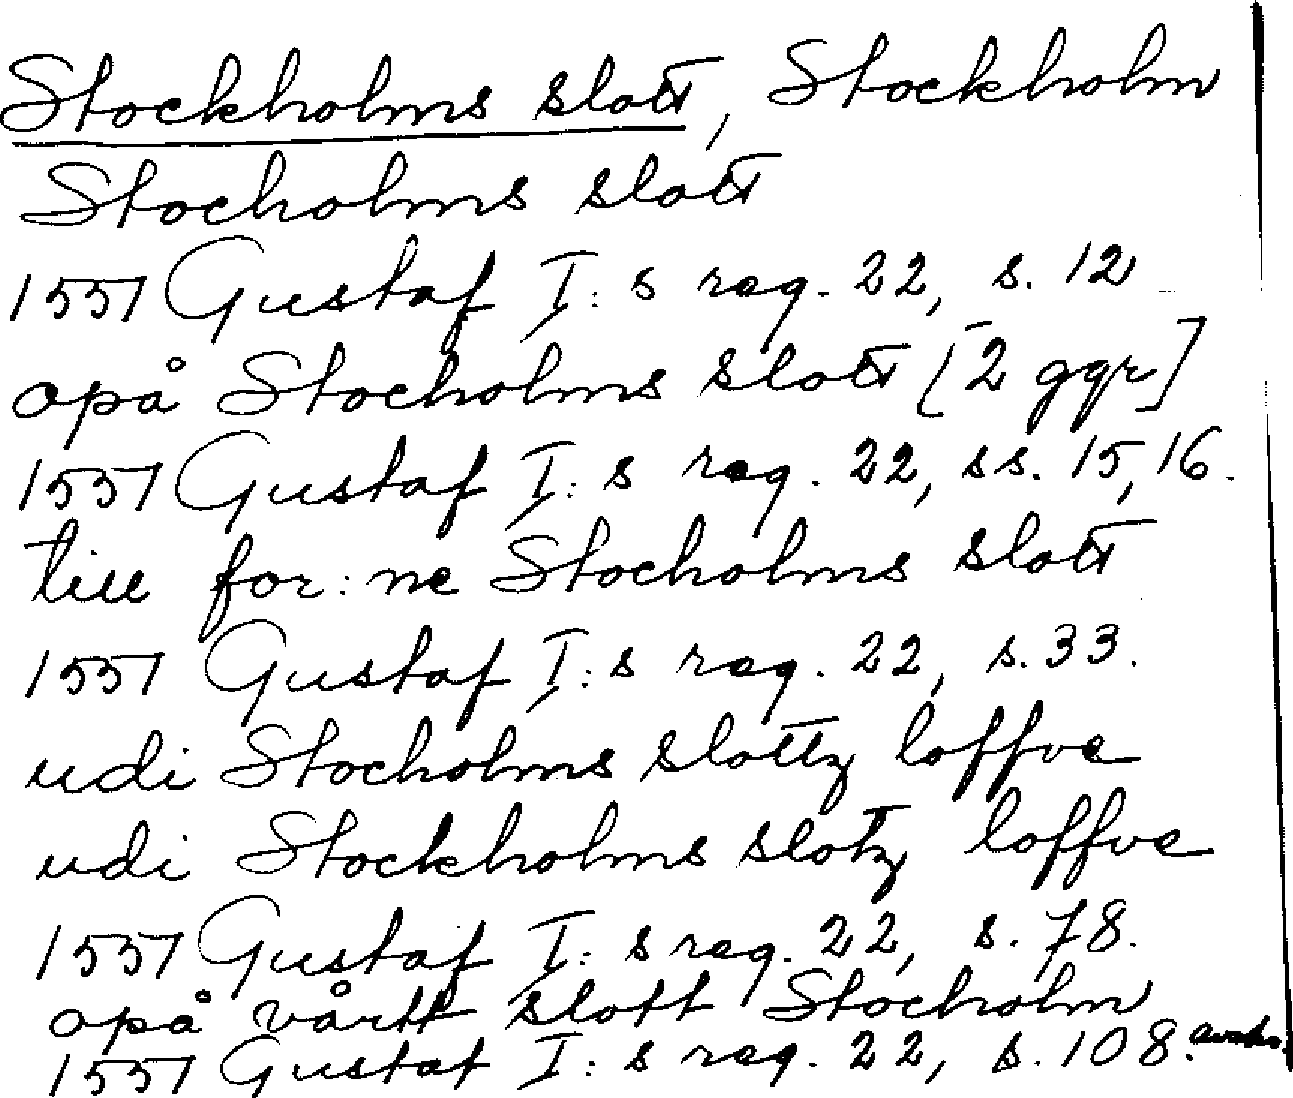 Stockholms slott, Stockholm
Stocholms slott
1551 Gustaf I:s reg. 22, s. 12
opå Stocholms slott [2 ggr]
1551 Gustaf I:s reg. 22, ss. 15, 16.
till for:ne Stocholms slott
1551 Gustaf I:s reg. 22, s. 33.
udi Stocholms slottz loffve
udi Stockholms slotz loffve
1551 Gustaf I:s reg. 22, s. 78.
opå vårtt slott Stocholm
1551 Gustaf I:s reg. 22, s. 108.